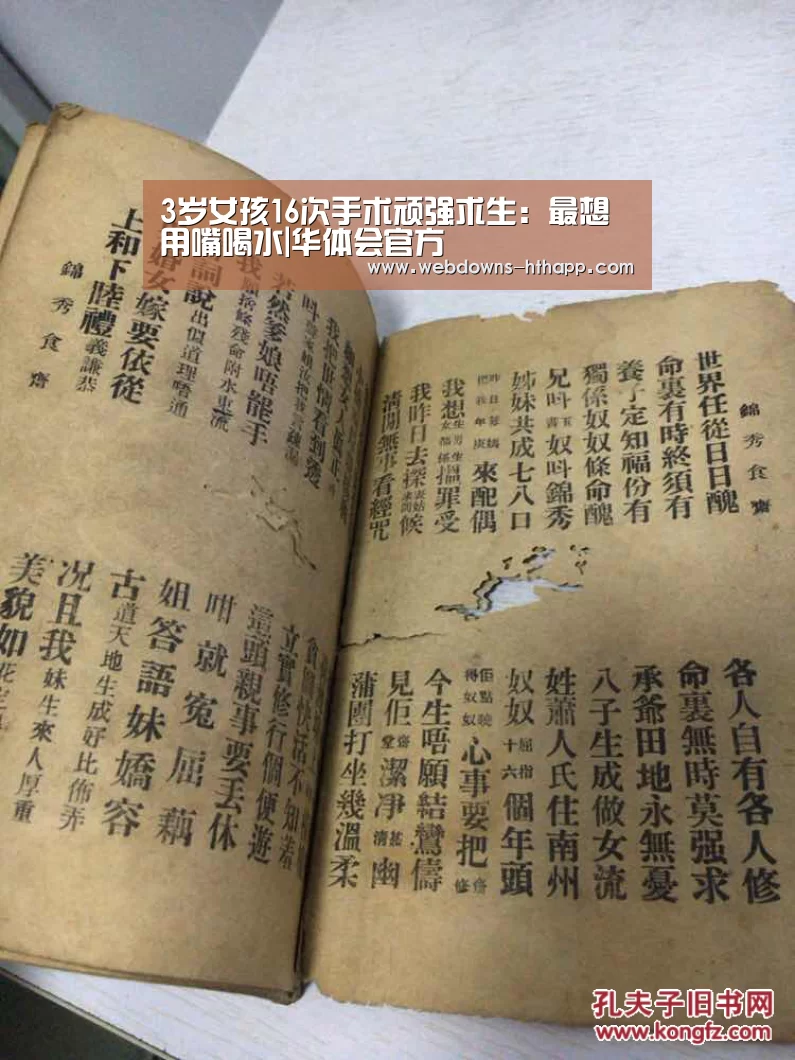 3岁女孩16次手术顽强求生：最想
用嘴喝水|华体会官方
www.webdowns-hthapp.com
錦秀食齋
世界任從日日醜
各人自有各人修
命裏有時終須有
命裏無時莫强求
養子定知福份有
承爺田地永無憂
獨係奴奴條命醜
八子生成做女流
兄叫玉書奴叫錦秀
姓蕭人氏住南州
姊妹共成七八口
奴奴屈指十六個年頭
昨日把我年庚來配偶
佢點曉得奴奴心事要把齋修
我想生男生女都係罪受
今生唔願結鸞儔
我昨日去探表姑來問候
見佢齋堂潔凈甚清幽
清閒無事看經咒
蒲團打坐幾溫柔
貪圖快活不知羞
立實修行個便遊
若然爹娘唔罷手
這頭親事要丟休
我願捨條殘命附水東流
咁就冤屈藕
詞說出似道理唔通
姐答語妹嬌容
婚女嫁要依從
古道天地生成好比佈弄
上和下陸禮義謙恭
况且我妹生來人厚重
美貌如花
錦秀食齋
孔夫子旧书网
www.kongfz.com